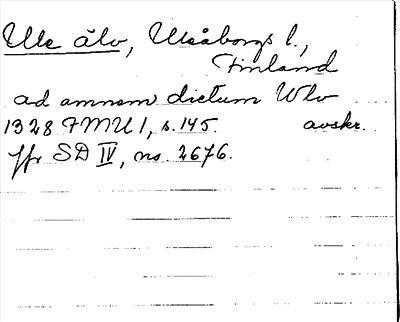 Ule älv, Uleåborgs l.,
Finland
ad amnem dictum Wlv
1328 FMU 1, s. 145. avskr.
jfr SD IV, no. 2676.